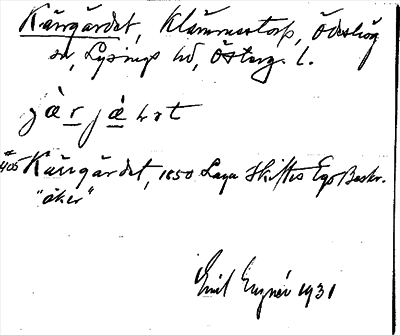 Kärrgärdet, Klämmestorp, Ödeshög
sn, Lysings hd, Österg. l.
jä̀r jæ̀ ḷ ət
# 405 Kärrgärdet, 1850 Laga Skiftes Ego Beskr.
"åker"
Emil 1931